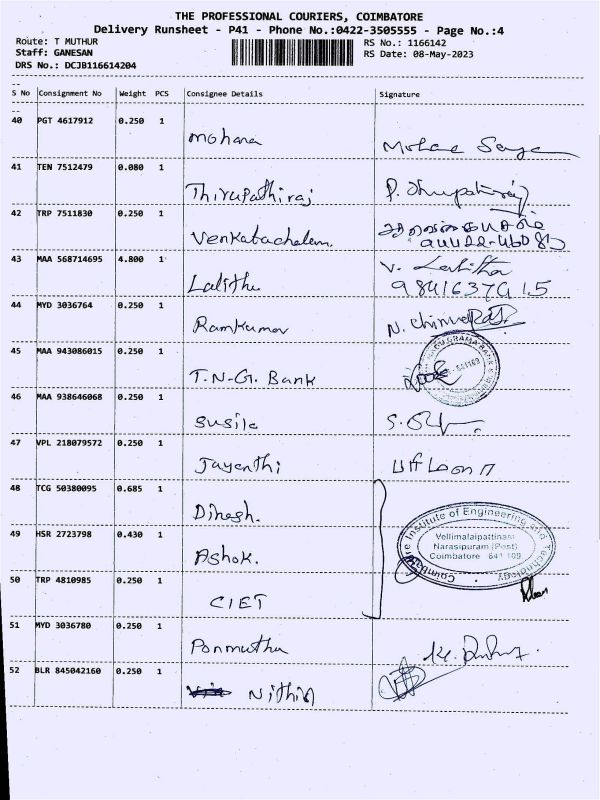 THE PROFESSIONAL COURIERS, COIMBATORE
Delivery Runsheet - P41 - Phone No.:0422-3505555 - Page No.:4
Route: T MUTHUR RS No.: 1166142
Staff: GANESAN RS Date: 08-May-2023
DRS No.: DCJB116614204
S No Consignment No Weight PCS Consignee Details Signature
40 PGT 4617912 0.250 1
Mohana
41 TEN 7512479 0.080 1
Thirupathiraj
42 TRP 7511830 0.250 1
Venkatachalam.
43 MAA 568714695 4.800 1 V. Lalitha
Lalitha 9841637915
44 MYD 3036764 0.250 1
Ramkumar
45 MAA 943086015 0.250 1
T.N.G. Bank
46 MAA 938646068 0.250 1
Susila
47 VPL 218079572 0.250 1
Jayanthi
48 TCG 50380095 0.685 1
Dinesh.
Coimbatore Institute of Engineering and Technology
Vellimalaipattinam
49 HSR 2723798 0.430 1 Narasipuram (Post)
Ashok. Coimbatore 641 109
50 TRP 4810985 0.250 1
CIET
51 MYD 3036780 0.250 1
Ponmuthu
52 BLR 845042160 0.250 1
Nithin